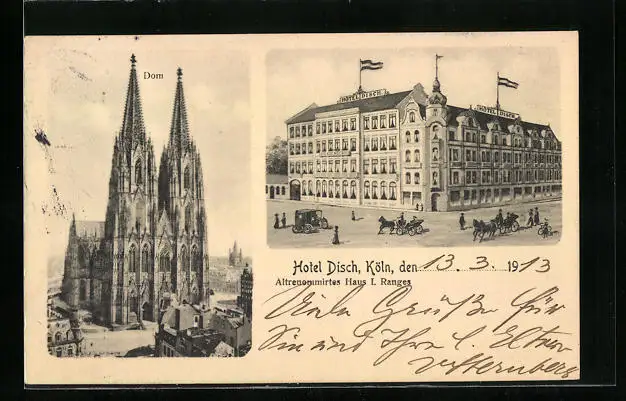 Dom
HOTEL DISCH
HOTEL DISCH
Hotel Disch, Köln, den 13. 3. 1913
Altrenommirtes Haus I. Ranges
Viele Grüße für
Sie und Ihre l. Eltern